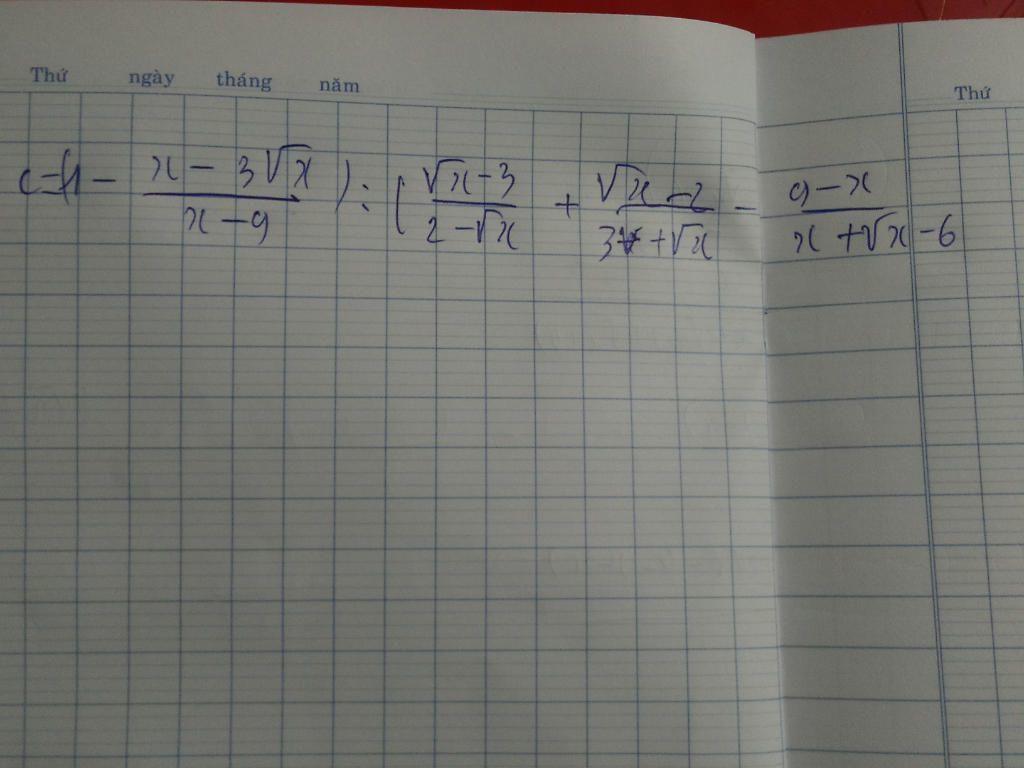 Thứ ngày tháng năm
Thứ
C = (1 - \frac{x - 3\sqrt{x}}{x - 9}) : (\frac{\sqrt{x} - 3}{2 - \sqrt{x}} + \frac{\sqrt{x} - 2}{3 + \sqrt{x}} - \frac{9 - x}{x + \sqrt{x} - 6}